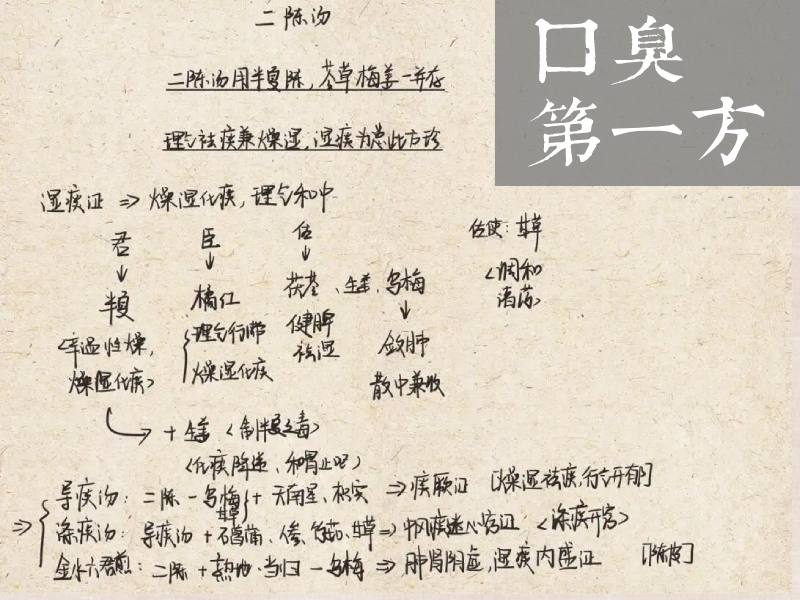 二陈汤
口臭
第一方
二陈汤用半夏陈,苓草梅姜一并存
理气祛痰兼燥湿,湿痰为患此方珍
湿痰证 ⇒ 燥湿化痰,理气和中
君 臣 佐 佐使:甘草
↓ ↓ ↓ <调和
半夏 橘红 茯苓、生姜、乌梅 诸药>
<辛温性燥, 理气行滞 健脾 ↓ 敛肺
燥湿化痰> 燥湿化痰 祛湿 散中兼收
→ +生姜 <制半夏之毒>
<化痰降逆、和胃止呕>
⇒ 导痰汤:二陈-乌梅 甘草 + 天南星、枳实 ⇒ 痰厥证 [燥湿祛痰,行气开郁]
涤痰汤:导痰汤+石菖蒲、人参、竹茹、甘草 ⇒ 中风痰迷心窍证 <涤痰开窍>
金水六君煎:二陈+熟地·当归-乌梅 ⇒ 肺肾阴虚,湿痰内盛证 [陈皮]